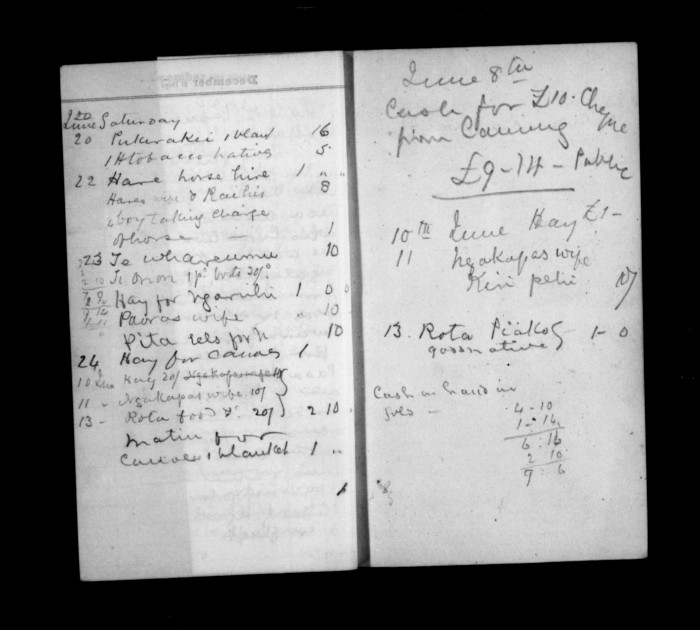 June Saturday
20 Pukerakei, 1 blan 16
1 H tobacco natives 5
22 Hare horse hire 1 " "
Hares wife & Raihis 8
a boy taking charge
of horse — 1
23 Te Whareumu 10
Te Orion 1 pr boots 20/
Hay for Ngaruhi 1 0 0
Paoras wife " 10
Pita rels for 10
24 Hay for Canoes 1
10 June Hay 20/ Ngakapas wife
11 - Ngakapas wife 10/
13 - Rota food &c. 20/ 2.10.
Matiu for
Canoe, 1 blanket 1 "
June 8th
Cash for £10. Cheque
from Canning
£9-14- Public
10th June Hay £1-
11 Ngakapas wife
Kiri pehi 10/
13. Rota Piako 1-0
good native
Cash in hand in
4-10
1-16
6:16
2 10
9 : 6